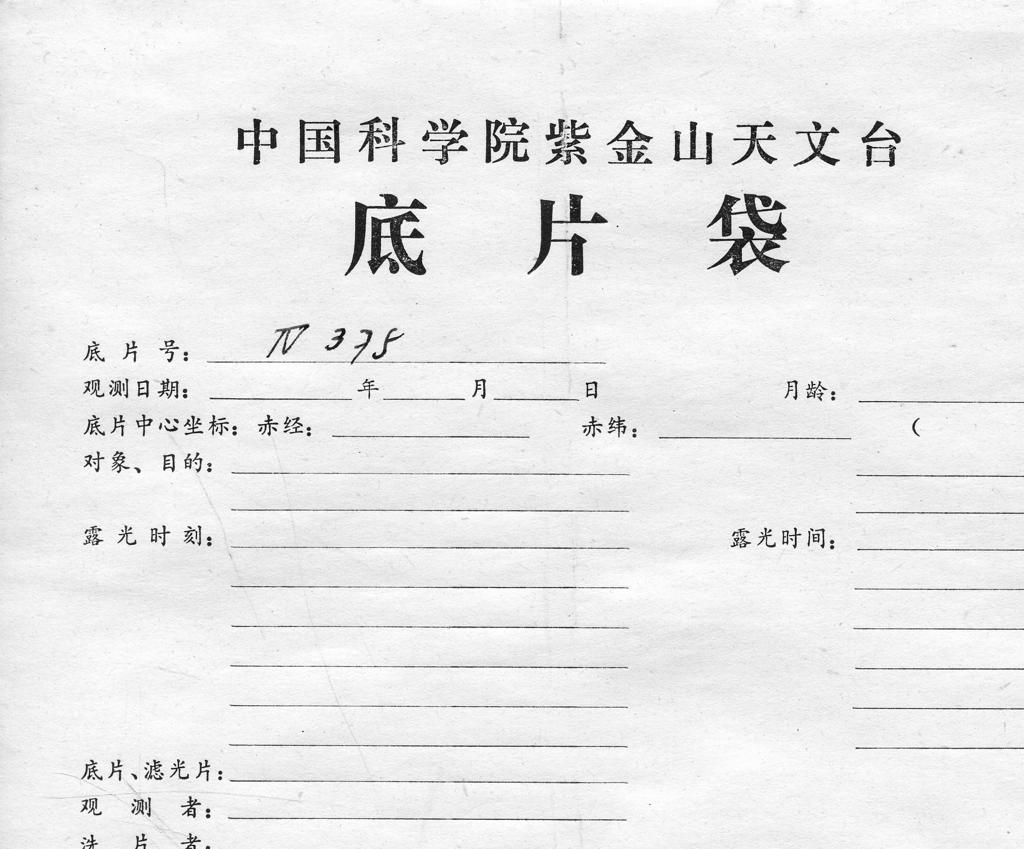 中国科学院紫金山天文台
底片袋
底片号： Ⅳ 375
观测日期： 年 月 日 月龄：
底片中心坐标：赤经： 赤纬： (
对象、目的：
露光时刻： 露光时间：
底片、滤光片：
观测者：
洗片者：